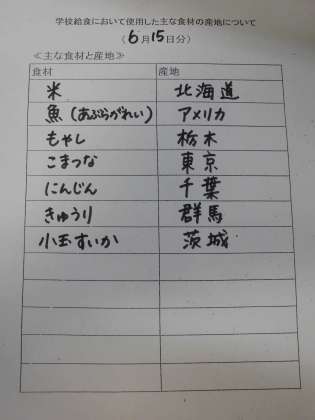 学校給食において使用した主な食材の産地について
(6月15日分)
≪主な食材と産地≫
食材 産地
米 北海道
魚(あぶらがれい) アメリカ
もやし 栃木
こまつな 東京
にんじん 千葉
きゅうり 群馬
小玉すいか 茨城